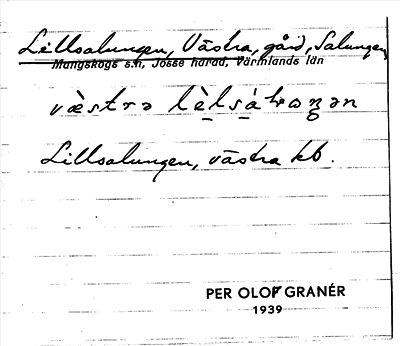 Lillsalungen, Västra, gård, Salungen
Mangskogs s:n, Jösse härad, Värmlands län
västra
Lillsalungen, västra kb.
PER OLOF GRANÉR
1939